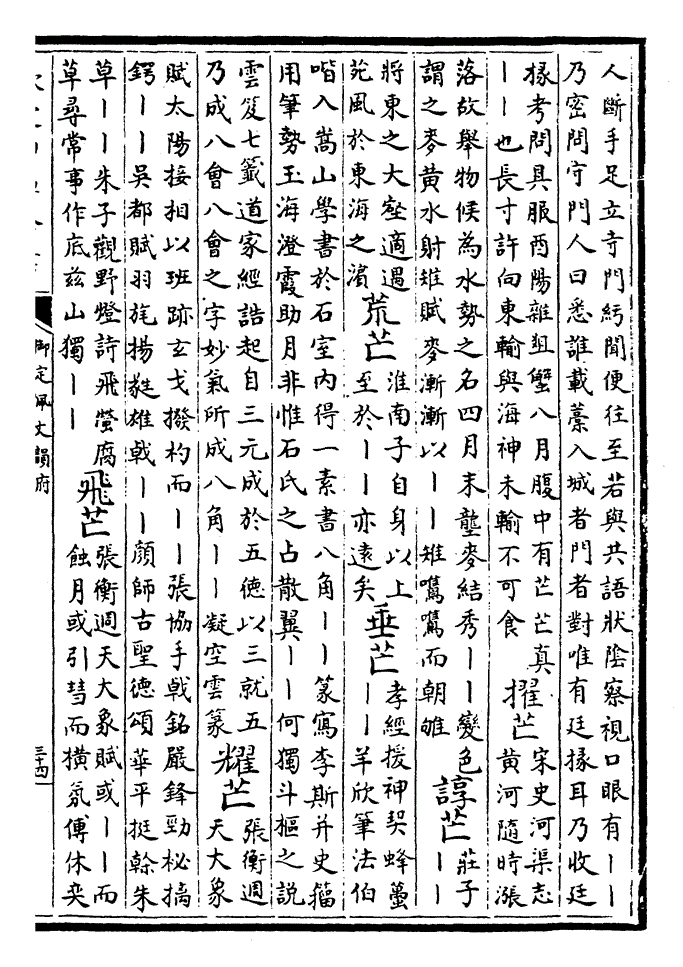 人斷手足立寺門紆聞便往至若與共語狀陰察視口眼有丨丨
乃密問守門人曰悉誰載藁入城者門者對唯有廷掾耳乃收廷
掾考問具服酉陽雜俎蟹八月腹中有芒芒真
丨丨也長寸許向東輸與海神未輸不可食
擢芒
宋史河渠志
黃河隨時漲
落故舉物候為水勢之名四月末壟麥結秀丨丨變色
謂之麥黃水射雉賦麥漸漸以丨丨雉鷕鷕而朝雊
諄芒
莊子
丨丨
將東之大壑適遇
苑風於東海之濱
荒芒
淮南子自身以上
至於丨丨亦遠矣
垂芒
孝經援神契蜂蠆
丨丨羊欣筆法伯
喈入嵩山學書於石室内得一素書八角丨丨篆寫李斯并史籀
用筆勢玉海澄霞助月非惟石氏之占散翼丨丨何獨斗樞之説
雲笈七籤道家經誥起自三元成於五德以三就五
乃成八會八會之字妙氣所成八角丨丨凝空雲篆
耀芒
張衡週
天大象
賦太陽接相以班跡玄戈撥杓而丨丨張協手戟銘嚴鋒勁柲摛
鍔丨丨吳都賦羽旄揚蕤雄戟丨丨顔師古聖德頌華平挺榦朱
草丨丨朱子觀野燈詩飛螢腐
草尋常事作底兹山獨丨丨
飛芒
張衡週天大象賦或丨丨而
蝕月或引彗而橫氛傅休奕
御定佩文韻府
三十四